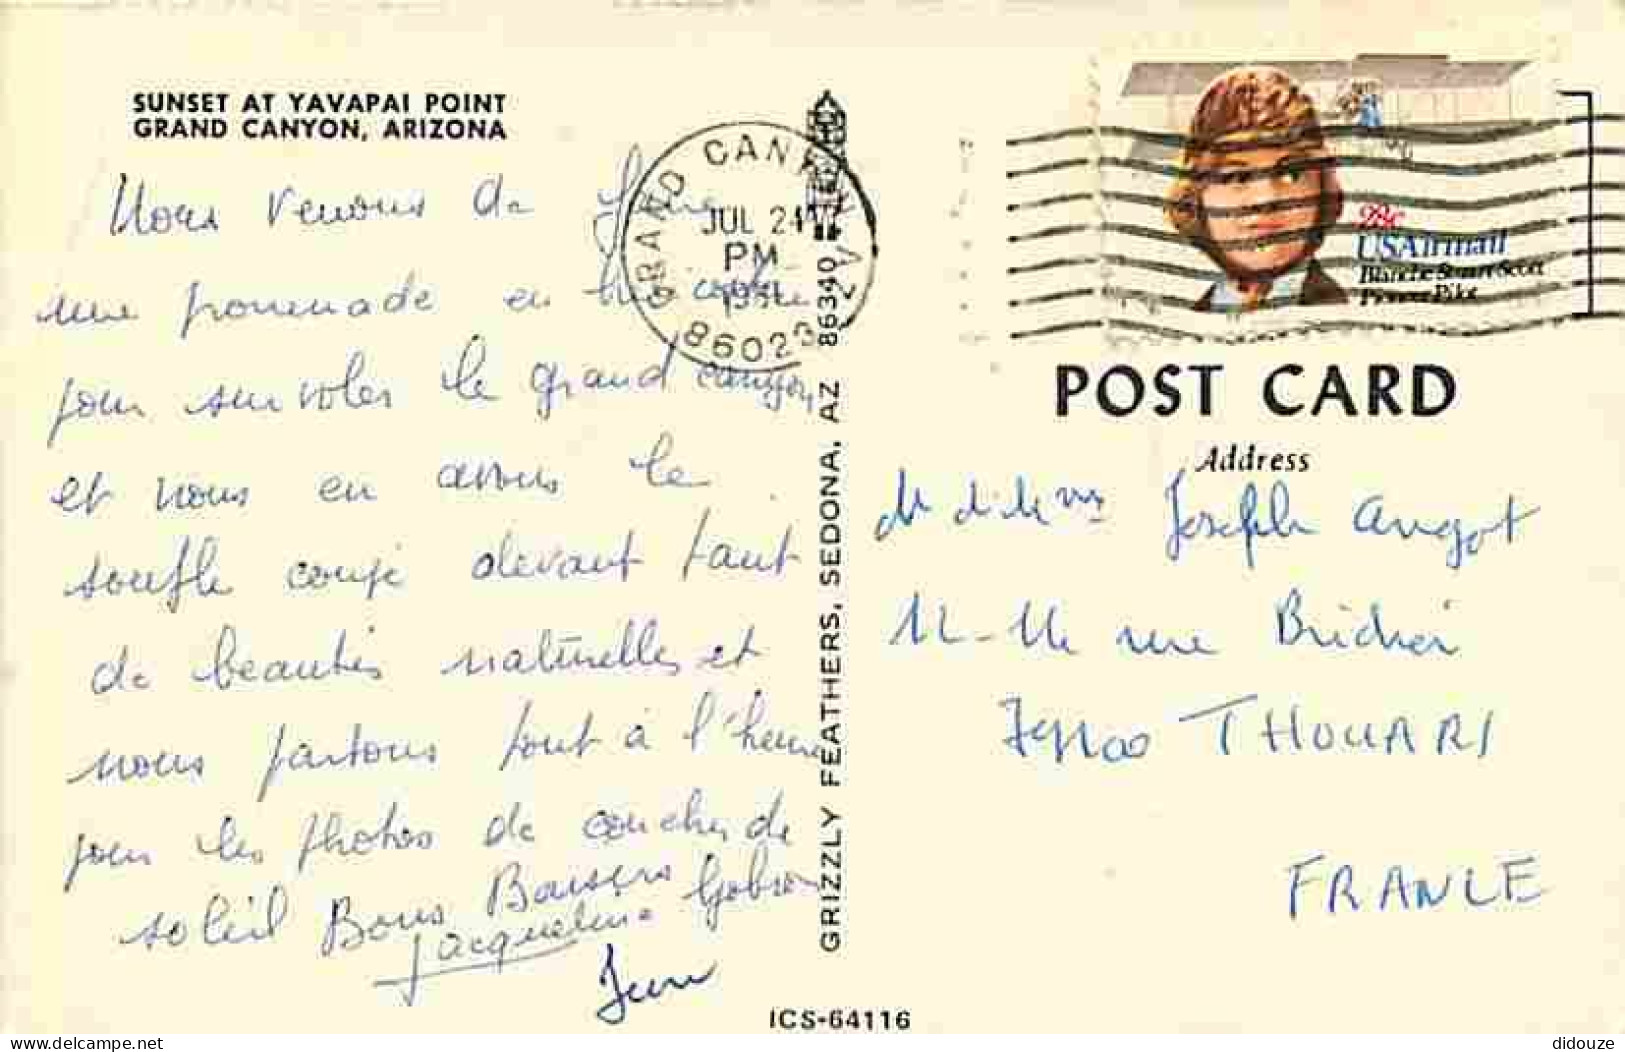 SUNSET AT YAVAPAI POINT
GRAND CANYON, ARIZONA
Nous venons de faire
une promenade en
pour survoler le grand canyon
et nous en avons le
souffle coupé devant tant
de beautés naturelles et
nous partons tout à l'heure
pour les photos de coucher de
soleil Bons Baisers
Jacqueline
GRAND CANYON, AZ
JUL 24
PM
86023
GRIZZLY FEATHERS, SEDONA, AZ 86340
28c
USAirmail
Blanche Stuart Scott
Pioneer Pilot
POST CARD
Address
Joseph Angot
rue
THOUARS
FRANCE
ICS-64116
delcampe.net
didouze